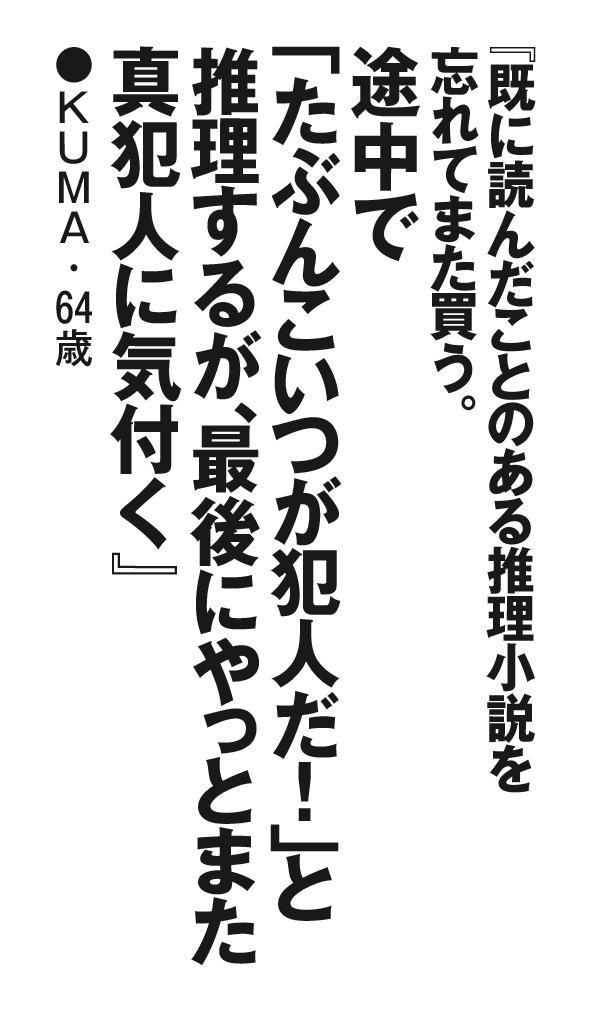 『既に読んだことのある推理小説を
忘れてまた買う。
途中で
「たぶんこいつが犯人だ！」と
推理するが、最後にやっとまた
真犯人に気付く』
●ＫＵＭＡ・64歳